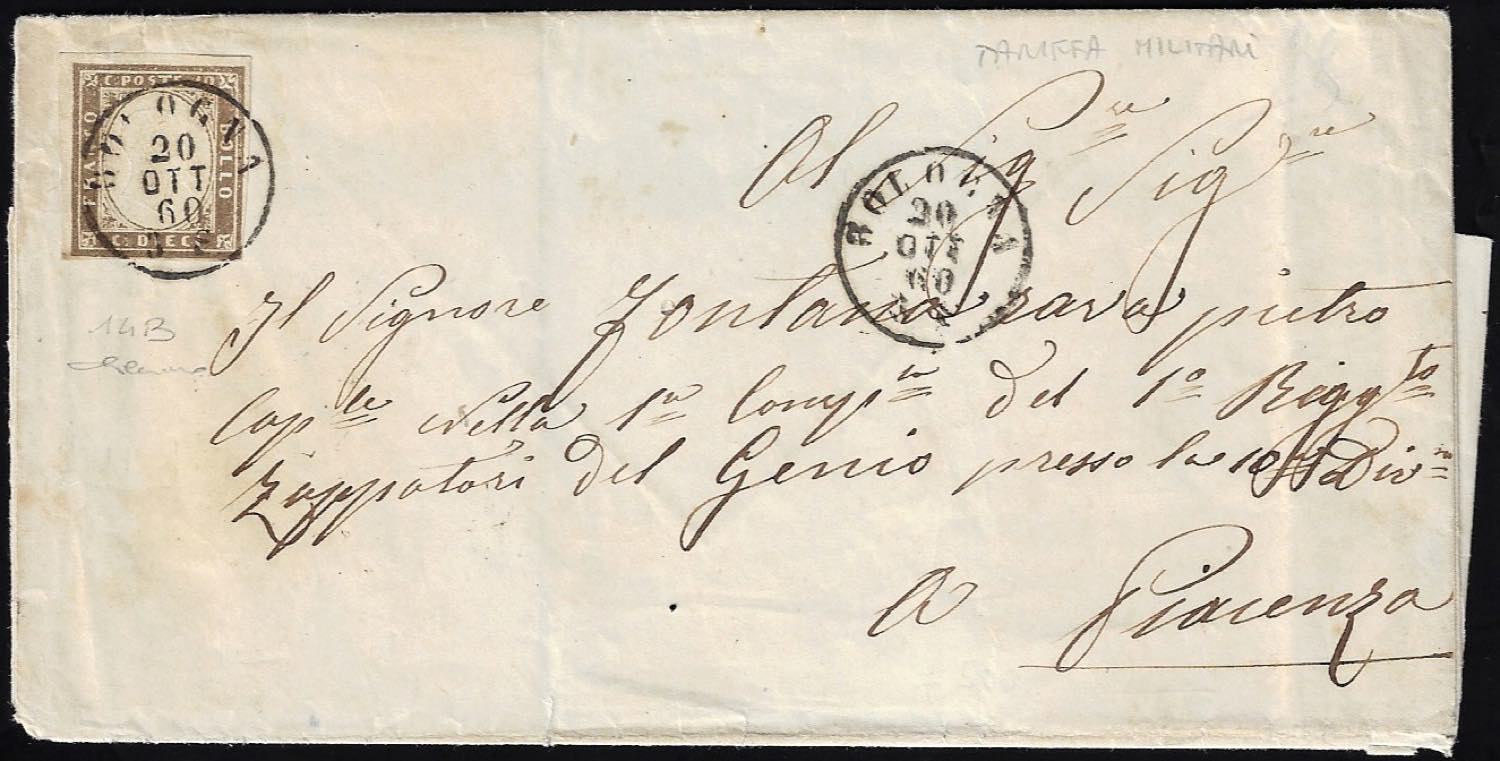 TARIFFA MILITARI
C. POSTE 10
FRANCO
BOLLO
C. DIECI
BOLOGNA
20
OTT
60
Al Sig.re Sig.re
BOLOGNA
20
OTT
60
Il Signore Fontana rava pietro
Cap.le nella 1a Comp.ia del 1o Regg.to
Zappatori del Genio presso la Div.ne
A Piacenza
14B